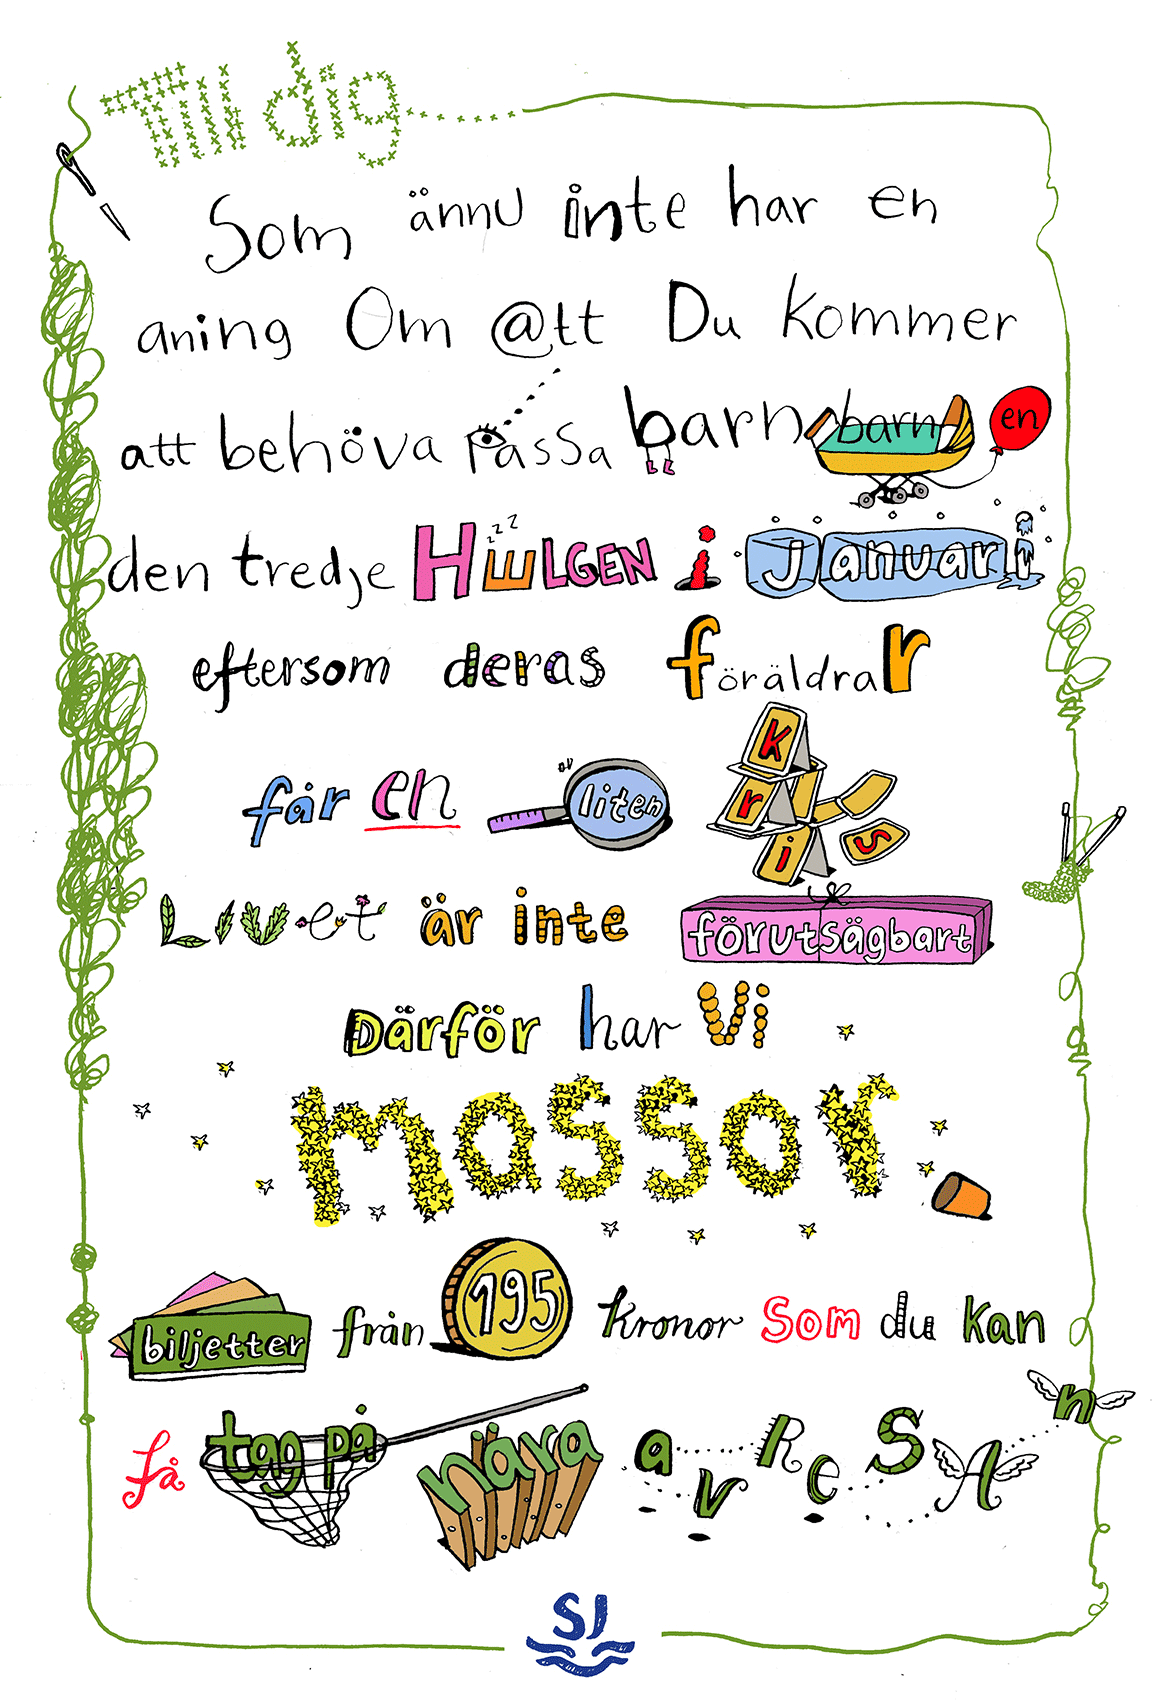 Till dig
Som ännu inte har en
aning Om @tt Du kommer
att behöva passa barnbarnen
den tredje HELGEN i januari
eftersom deras föräldrar
får en liten kris
Livet är inte förutsägbart
Därför har Vi
massor
biljetter från 195 kronor som du kan
få tag på nära avResAn
SJ